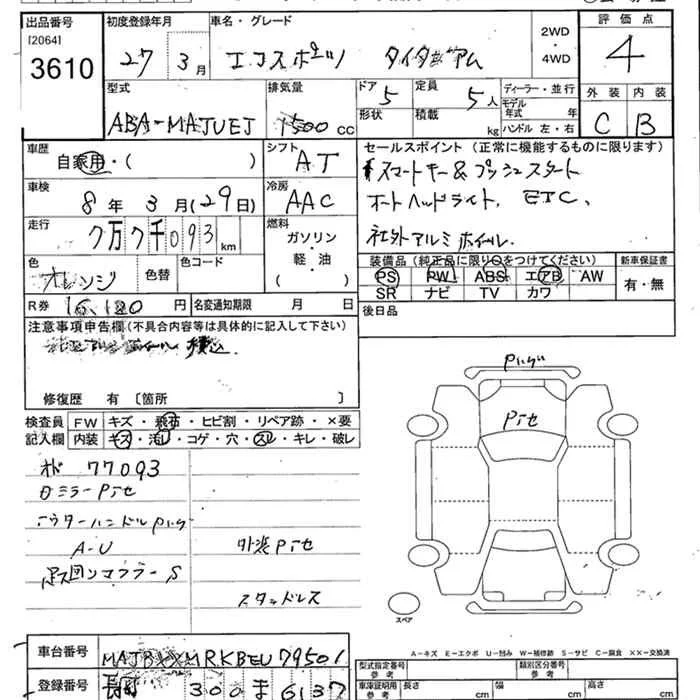 出品番号
[2064]
3610
初度登録年月
27 3月
車名・グレード
エコスポーツ タイタニアム
2WD
・
4WD
評価点
4
外装 内装
C B
型式
ABA-MAJUEJ
排気量
1500 cc
ドア 5
形状
定員 5人
積載 kg
ディーラー・並行
モデル年式 年
ハンドル 左・右
車歴
自家用・( )
シフト
AT
セールスポイント (正常に機能するものに限ります)
スマートキー&プッシュスタート
オートヘッドライト, ETC,
社外アルミホイール.
車検
8年 3月(29日)
冷房
AAC
走行
7万7千093 km
燃料
ガソリン
・
軽・油
( )
色
オレンジ
色替
色コード
装備品 (純正品に限り○をつけてください)
PS PW ABS エアB AW
SR ナビ TV カワ
新車保証書
有・無
R券 16,180 円
名変通知期限 月 日
後日品
注意事項申告欄(不具合内容等は具体的に記入して下さい)
積込.
修復歴 有 〔箇所 〕
検査員記入欄
FW キズ・飛石・ヒビ割・リペア跡・×要
内装 キズ・汚レ・コゲ・穴・スレ・キレ・破レ
77093
ミラーPTセ
アウターハンドル
A-U
外装PTセ
マフラーS
スタッドレス
PTセ
スペア
A-キズ E-エクボ U-凹み W-補修跡 S-サビ C-腐食 XX-交換済
車台番号
MAJBXXMRKBEU79501
登録番号
長岡 300 ま 6137
型式指定番号
参考
類別区分番号
参考
車庫証明用
参考
長さ cm
幅 cm
高さ cm